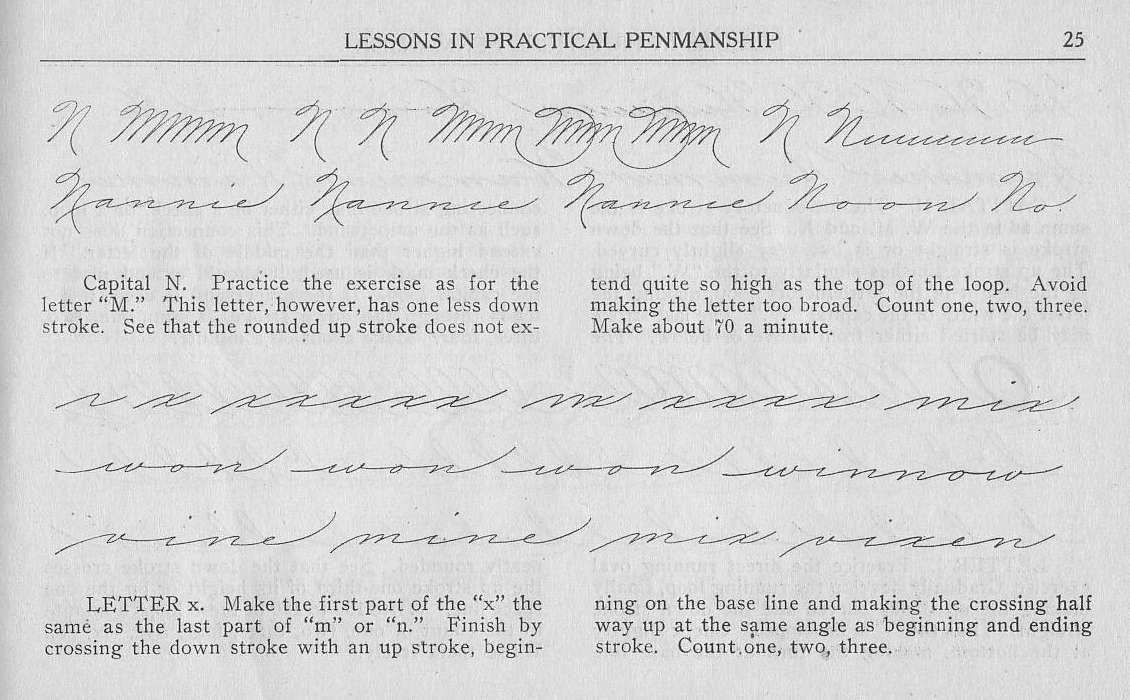 LESSONS IN PRACTICAL PENMANSHIP 25
N N N N N
Nannie Nannie Nannie No on No.
Capital N. Practice the exercise as for the
letter “M.” This letter, however, has one less down
stroke. See that the rounded up stroke does not ex-
tend quite so high as the top of the loop. Avoid
making the letter too broad. Count one, two, three.
Make about 70 a minute.
x xxxxx xxxx mix
won won won winnow
vine mine mix vixen
LETTER x. Make the first part of the “x” the
same as the last part of “m” or “n.” Finish by
crossing the down stroke with an up stroke, begin-
ning on the base line and making the crossing half
way up at the same angle as beginning and ending
stroke. Count one, two, three.